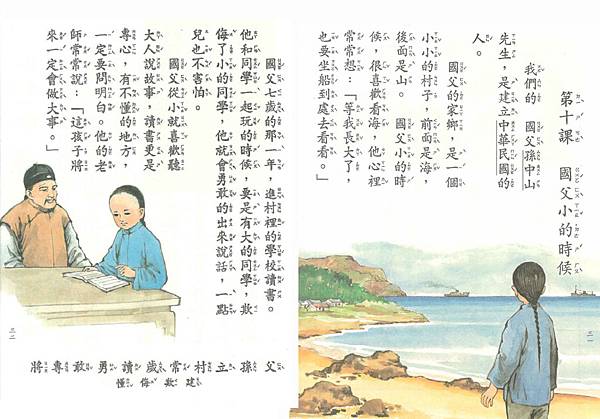 第十課　國父小的時候
我們的　國父孫中山
先生，是建立中華民國的
人。
國父的家鄉，是一個
小小的村子，前面是海，
後面是山。　國父小的時
候，很喜歡看海，他心裡
常常想：「等我長大了，
也要坐船到處去看看。」
三一
國父七歲的那一年，進村裡的學校讀書。
他和同學一起玩的時候，要是有大的同學，欺
侮了小的同學，他就會勇敢的出來說話，一點
兒也不害怕。
國父從小就喜歡聽
大人說故事，讀書更是
專心，有不懂的地方，
一定要問明白。他的老
師常常說：「這孩子將
來一定會做大事。」
父孫立村常歲讀勇敢專將
建欺侮懂
三二